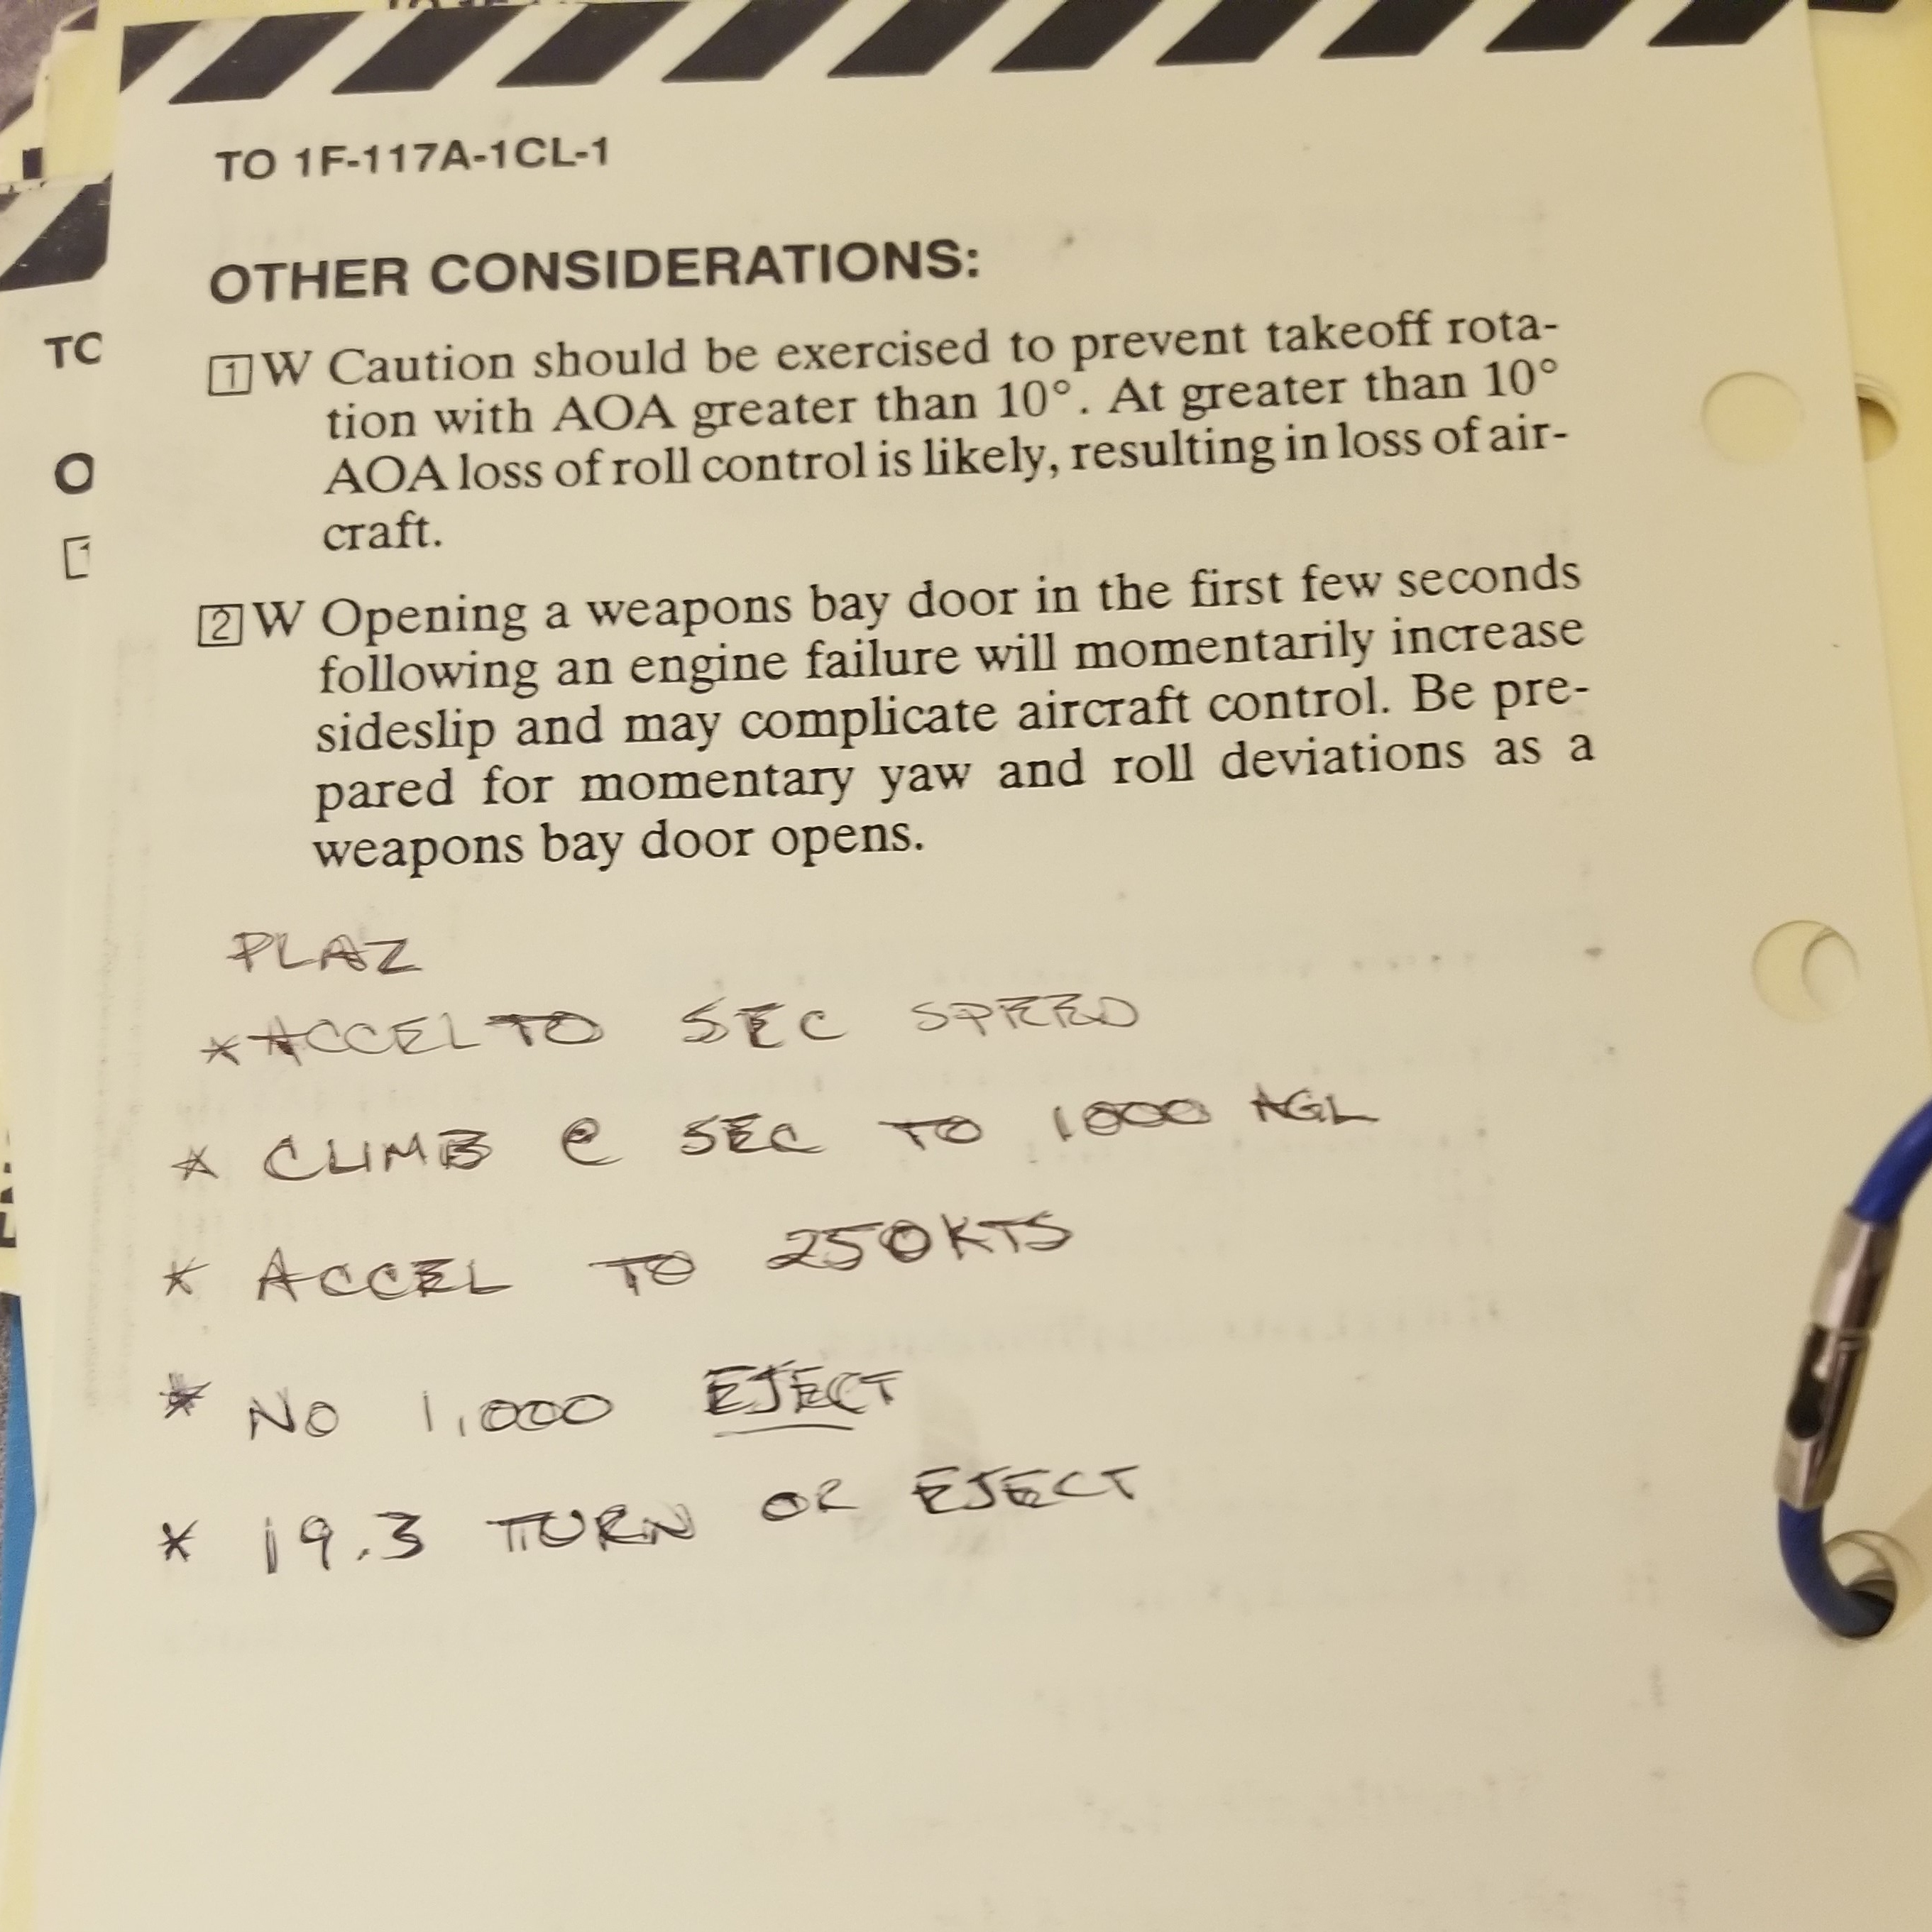 TO 1F-117A-1CL-1
OTHER CONSIDERATIONS:
1 W Caution should be exercised to prevent takeoff rota-
tion with AOA greater than 10°. At greater than 10°
AOA loss of roll control is likely, resulting in loss of air-
craft.
2 W Opening a weapons bay door in the first few seconds
following an engine failure will momentarily increase
sideslip and may complicate aircraft control. Be pre-
pared for momentary yaw and roll deviations as a
weapons bay door opens.
PLAZ
* ACCEL TO SEC SPEED
* CLIMB @ SEC TO 1000 AGL
* ACCEL TO 250KTS
* NO 1,000 EJECT
* 19.3 TURN OR EJECT
TO
O
1